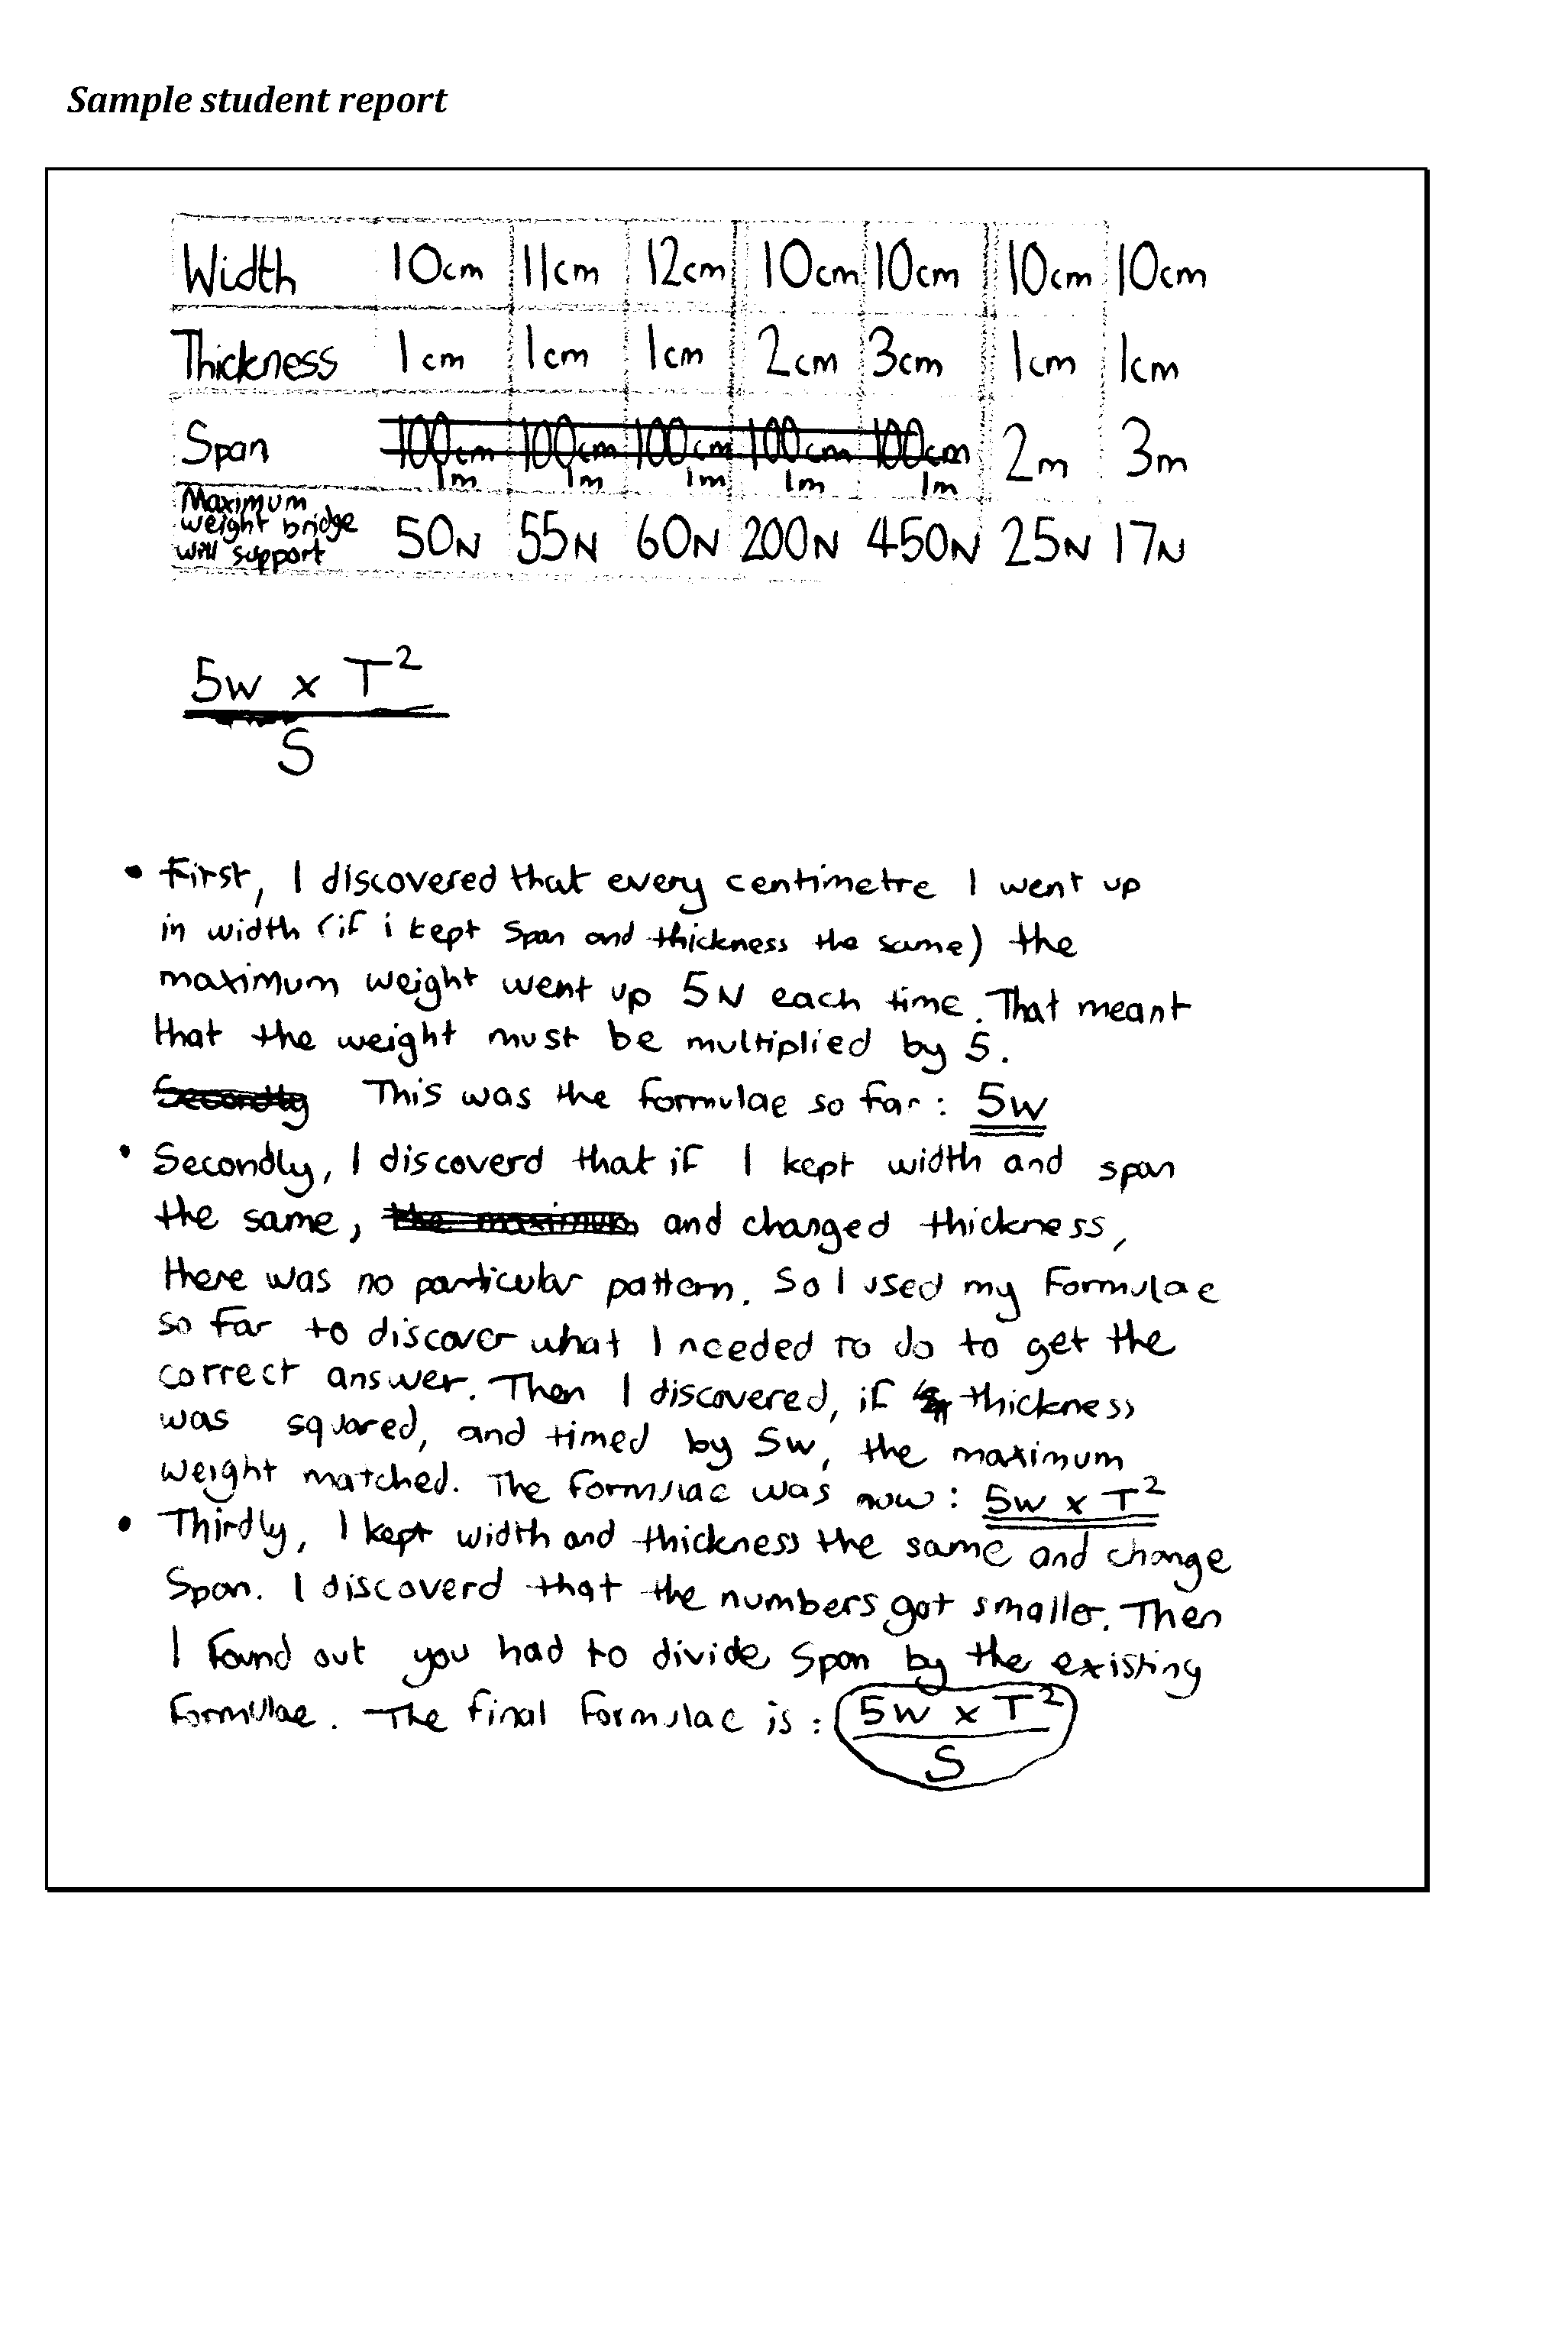 Sample student report
Width 10cm 11cm 12cm 10cm 10cm 10cm 10cm
Thickness 1cm 1cm 1cm 2cm 3cm 1cm 1cm
Span 100cm 100cm 100cm 100cm 100cm 2m 3m
1m 1m 1m 1m 1m
Maximum
weight bridge
will support 50N 55N 60N 200N 450N 25N 17N
5w x T²
S
• First, I discovered that every centimetre I went up
in width (if i kept span and thickness the same) the
maximum weight went up 5N each time. That meant
that the weight must be multiplied by 5.
Secondly This was the formulae so far: 5w
• Secondly, I discoverd that if I kept width and span
the same, the maximum and changed thickness,
there was no particular pattern. So I used my formulae
so far to discover what I needed to do to get the
correct answer. Then I discovered, if thickness
was squared, and timed by 5w, the maximum
weight matched. The formulae was now: 5w x T²
• Thirdly, I kept width and thickness the same and change
Span. I discoverd that the numbers got smaller. Then
I found out you had to divide span by the existing
formulae. The final formulae is: 5w x T²
S